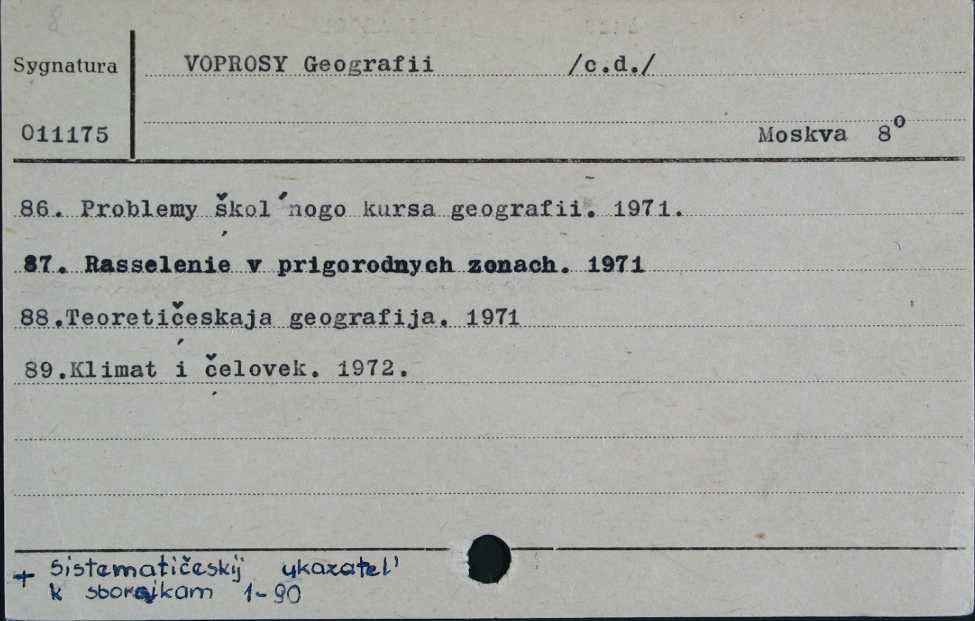 Sygnatura
VOPROSY Geografii /c.d./
011175
Moskva 8°
86. Problemy škol´nogo kursa geografii. 1971.
87. Rasselenie v prigorodnych zonach. 1971
88.Teoretičeskaja geografija. 1971
89.Klimat i čelovek. 1972.
+ Sistematičeskij ukazatel'
k sbornikam 1-90